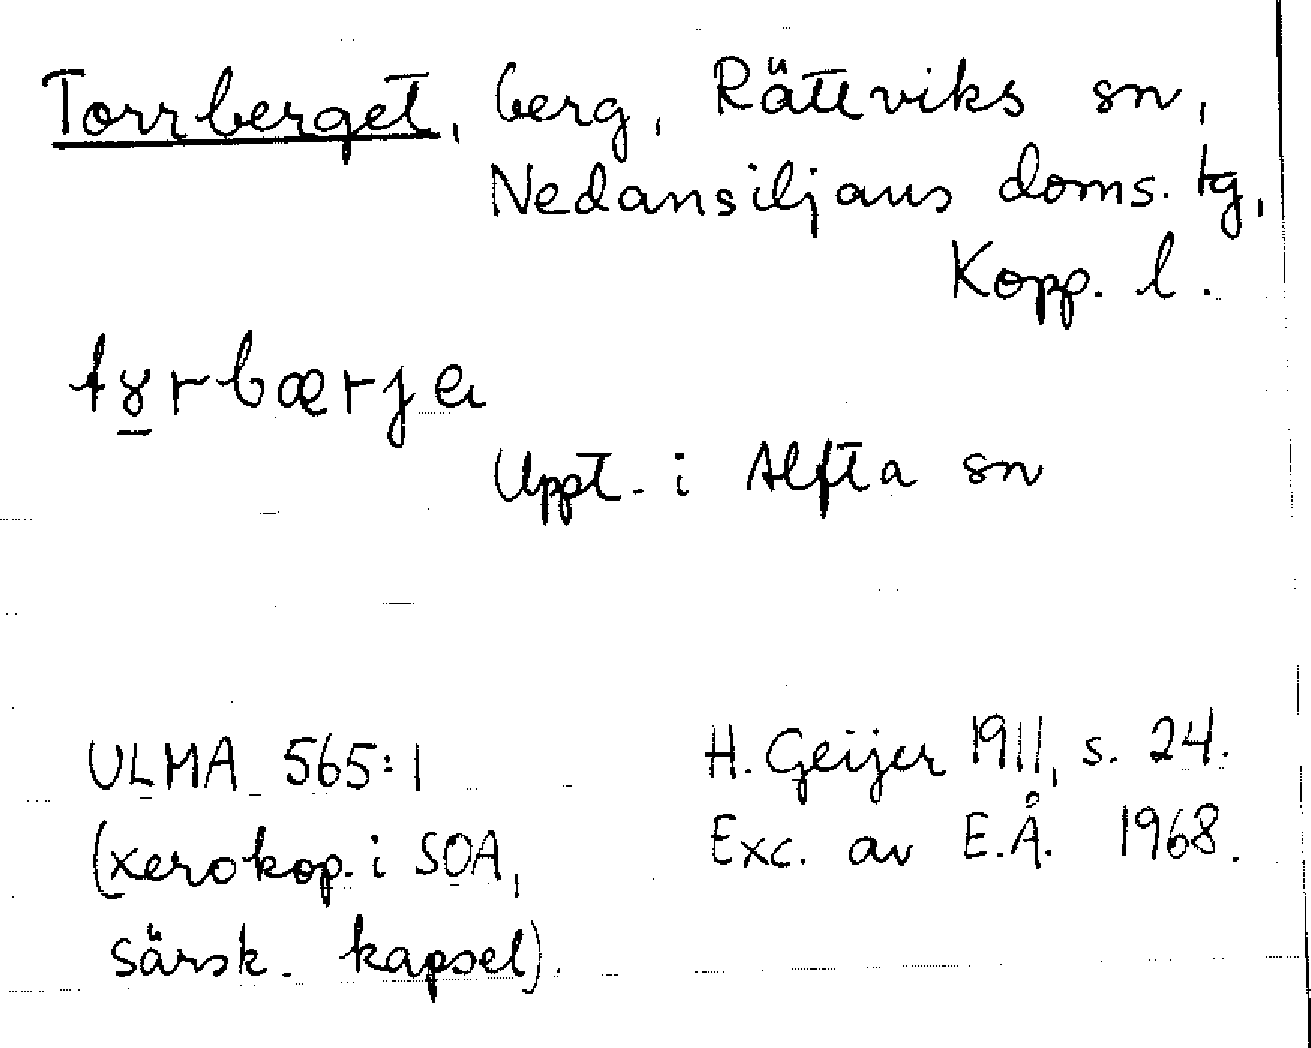 Torrberget, berg, Rättviks sn,
Nedansiljans doms. tg,
Kopp. l.
tɣrbærjeı
Uppt. i Alfta sn
ULMA 565:1
(xerokop. i SOA,
särsk. kapsel).
H. Geijer 1911, s. 24.
Exc. av E.Å. 1968.